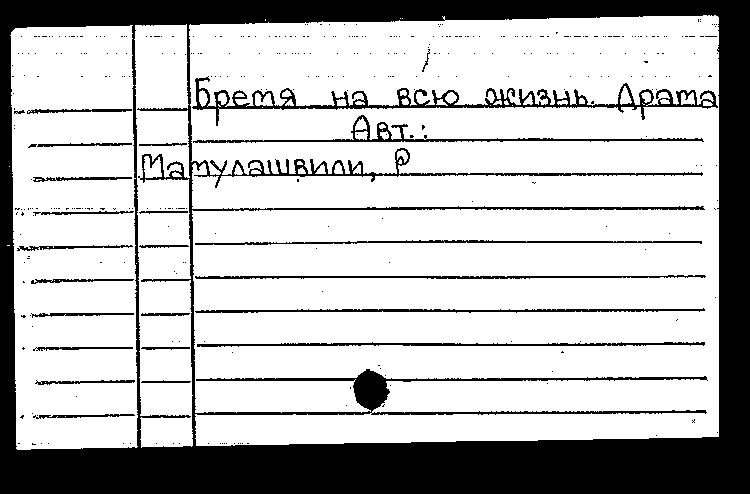 Бремя на всю жизнь. Драма
Авт.:
Мамулашвили, Р